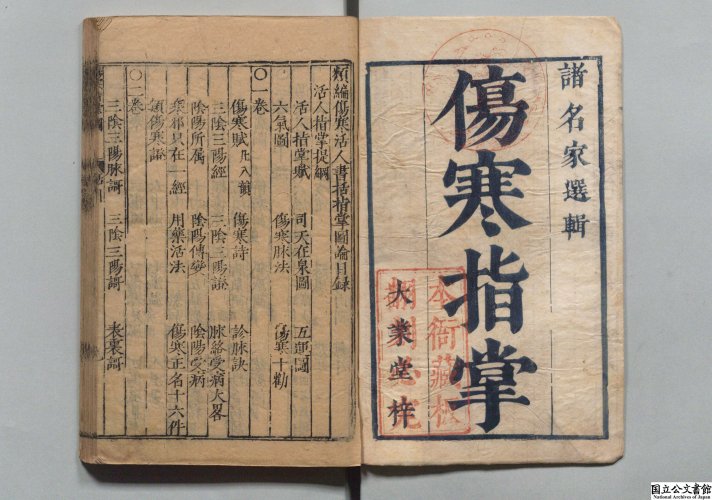 諸名家選輯
傷寒指掌
大業堂梓
本衙藏板
翻刻必究
類編傷寒活人書括指掌圖論目録
活人指掌提綱
活人指掌賦 司天在泉圖 五運圖
六氣圖 傷寒脉法 傷寒十勸
〇一卷
傷寒賦 傷寒詩 診脉訣
三陰三陽經 三陰三陽 脉絡受病大畧
陰陽所属 陰陽傳變 陰陽受病
寒邪只在一經 用藥活法 傷寒正名十六件
類傷寒
〇二卷
三陰三陽脉謌 三陰三陽謌 表裏謌
国立公文書館
National Archives of Japan